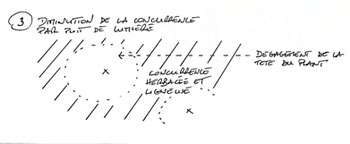 3 DIMINUTION DE LA CONCURRENCE
PAR PUIT DE LUMIÈRE
DEGAGEMENT DE LA
TETE DU PLANT
CONCURRENCE
HERBACÉE ET
LIGNEUSE